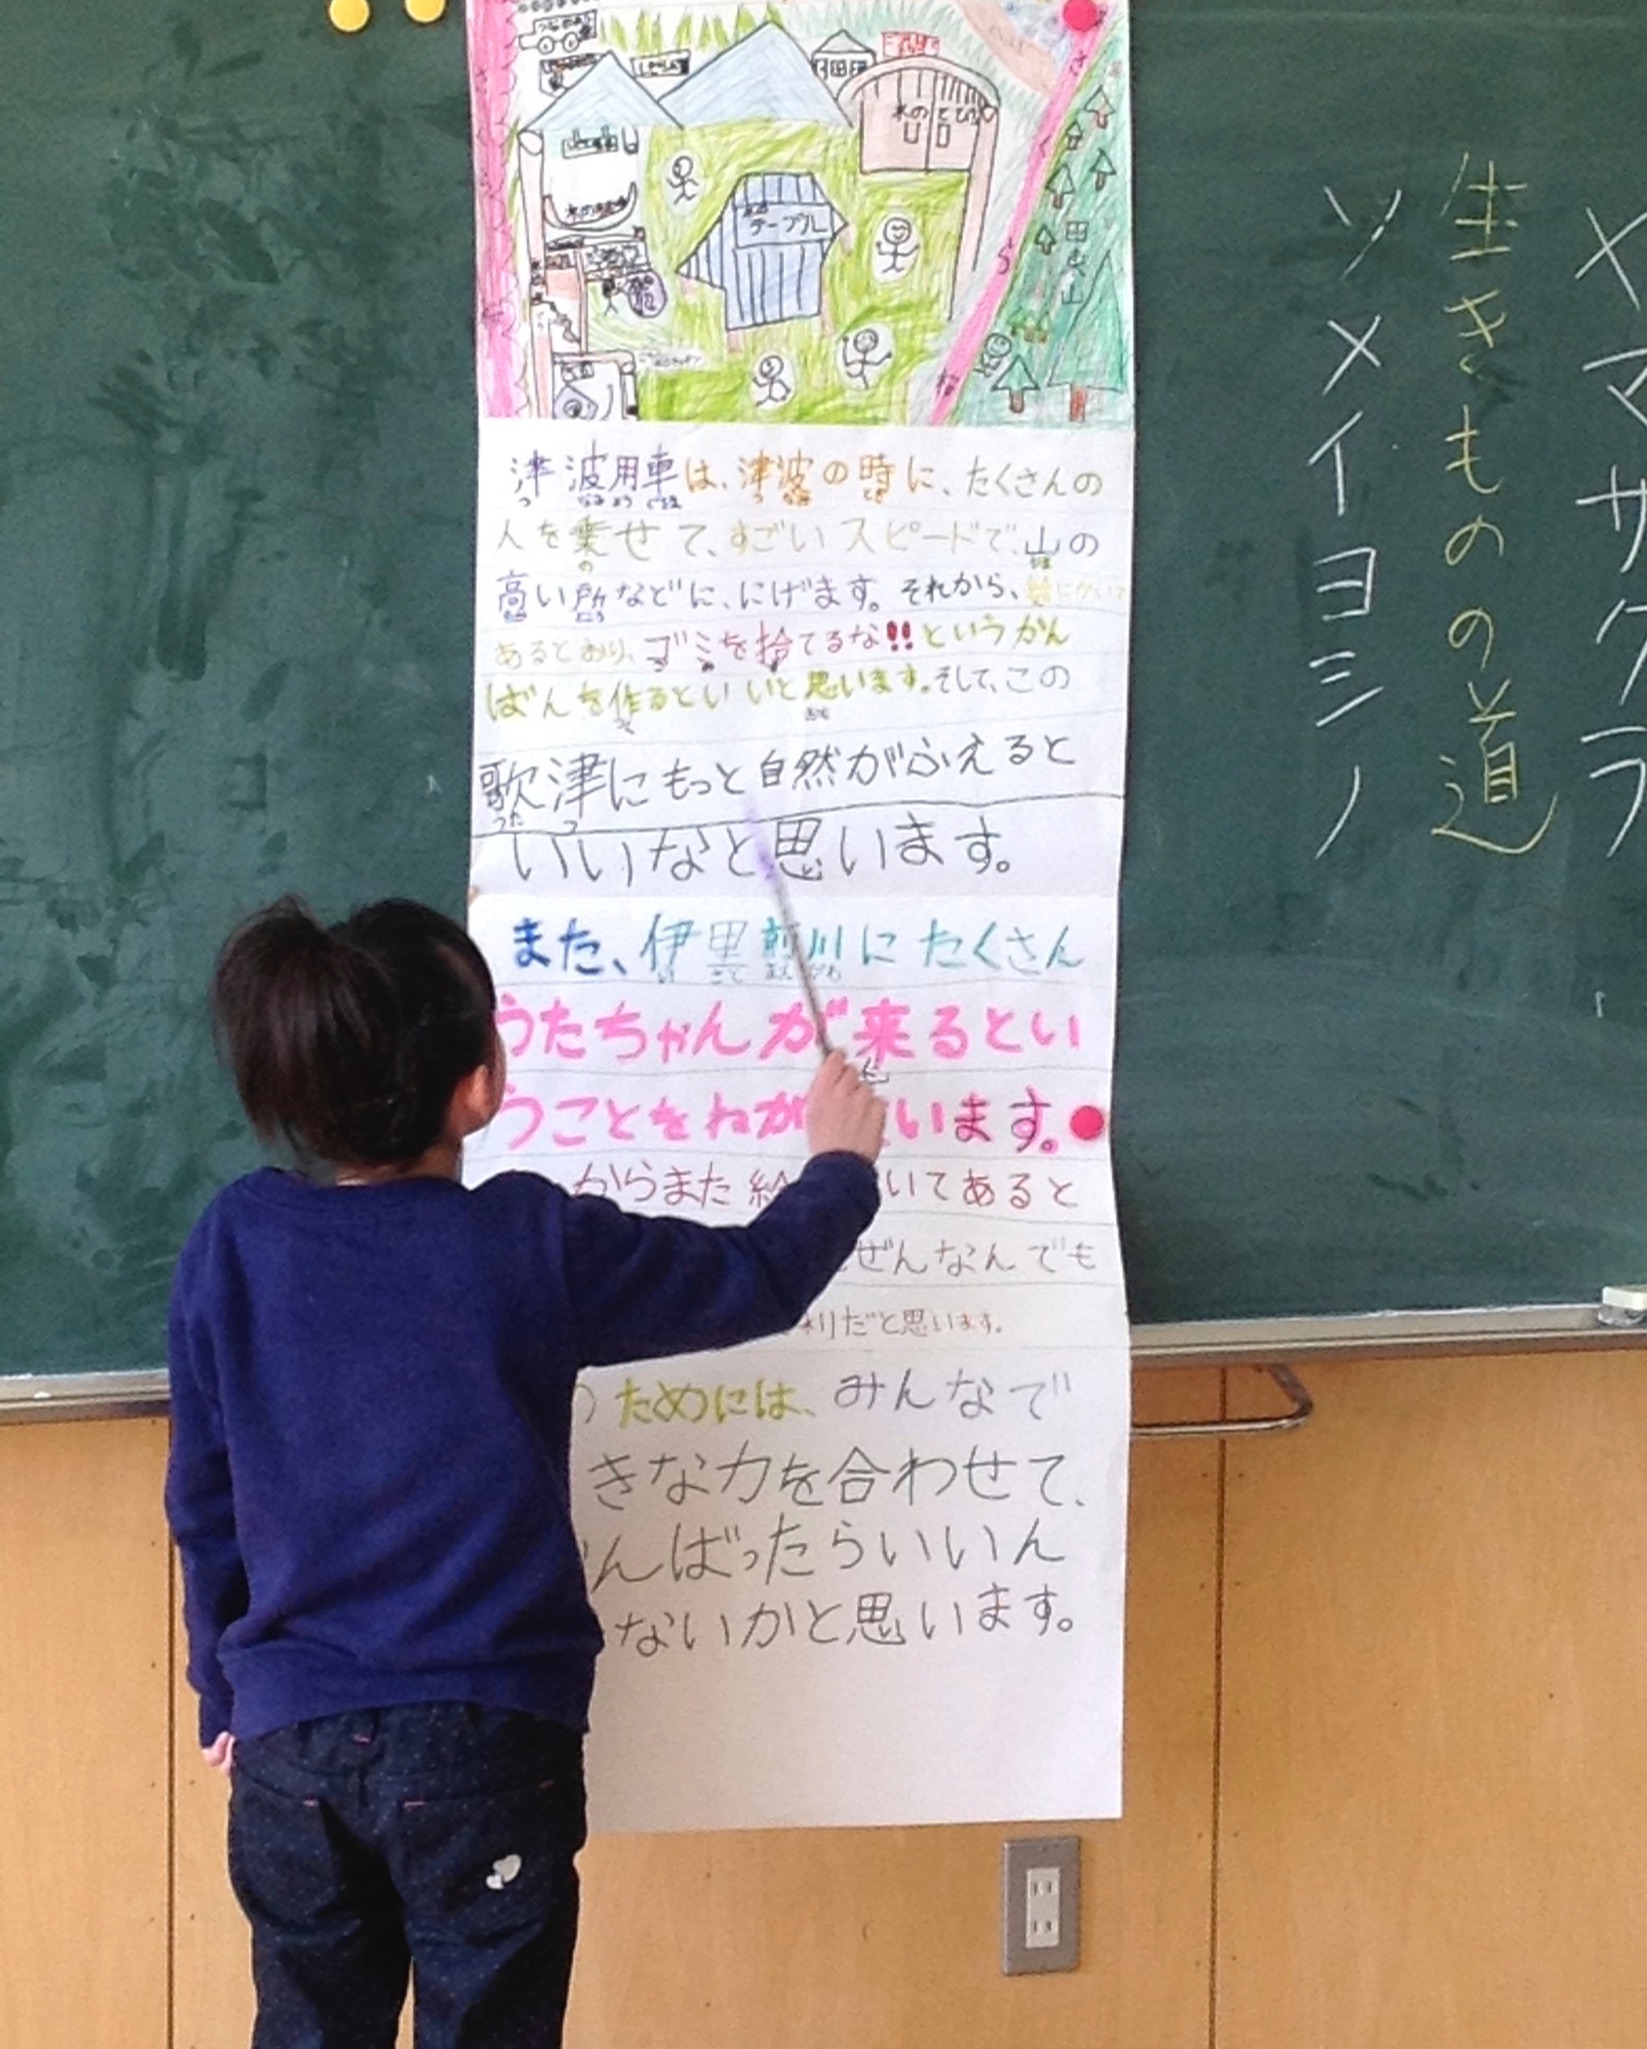 テーブル
木の
さ
く
ら
桜
田
束
山
津波用車は、津波の時に、たくさんの
つ なみ よう ぐるま つ なみ とき
人を乗せて、すごいスピードで、山の
の やま
高い所などに、にげます。それから、絵にかいて
たか ところ
あるとおり、ゴミを捨てるな!!というかん
ばんを作るといいと思います。そして、この
つく おも
歌津にもっと自然がふえると
うた つ
いいなと思います。
また、伊里前川にたくさん
い さと まえ がわ
うたちゃんが来るとい
く
うことをねが います。
からまた絵 いてあると
ぜんなんでも
りだと思います。
ためには、みんなで
きな力を合わせて、
んばったらいいん
ないかと思います。
ヤマザクラ
生きものの道
ソメイヨシノ